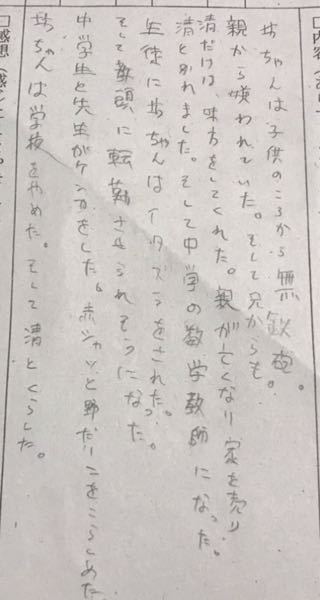 内容
坊ちゃんは子供のころから無鉄砲。
親から嫌われていた。そして兄からも。
清だけは、味方をしてくれた。親が亡くなり家を売り
清とわかれました。そして中学の数学教師になった。
生徒に坊ちゃんはイタズラをされた。
そして教頭に転勤させられそうになった。
中学生と先生がケンカをした。赤シャツと野だいこをこらしめた
坊ちゃんは学校をやめた。そして清とくらした。
感想